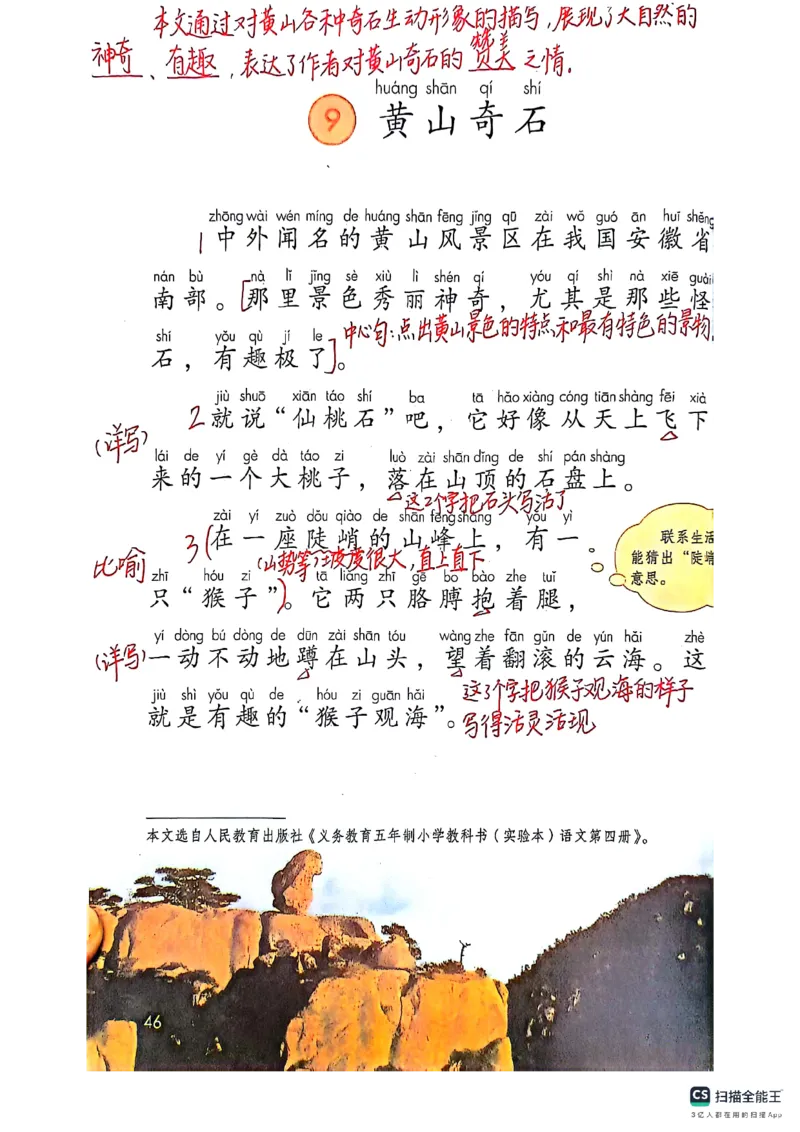 本文通过对黄山各种奇石生动形象的描写,展现了大自然的
神奇、有趣,表达了作者对黄山奇石的赞美之情.
huáng shān qí shí
9 黄山奇石
zhōng wài wén míng de huáng shān fēng jǐng qū zài wǒ guó ān huī shěng
1 中外闻名的黄山风景区在我国安徽省
nán bù nà lǐ jǐng sè xiù lì shén qí yóu qí shì nà xiē guài
南部。[那里景色秀丽神奇,尤其是那些怪
中心句:点出黄山景色的特点和最有特色的景物
shí yǒu qù jí le
石,有趣极了]。
jiù shuō xiān táo shí ba tā hǎo xiàng cóng tiān shàng fēi xià
2 就说“仙桃石”吧,它好像从天上飞下
(详写)
lái de yí gè dà táo zi luò zài shān dǐng de shí pán shàng
来的一个大桃子,落在山顶的石盘上。
这2个字把石头写活了
zài yí zuò dǒu qiào de shān fēng shang yǒu yì
3(在一座陡峭的山峰上,有一
联系生活
能猜出“陡峭
意思。
比喻
(山势等)坡度很大,直上直下
zhī hóu zi tā liǎng zhī gē bo bào zhe tuǐ
只“猴子”)。它两只胳膊抱着腿,
yí dòng bú dòng de dūn zài shān tóu wàng zhe fān gǔn de yún hǎi zhè
(详写)一动不动地蹲在山头,望着翻滚的云海。这
jiù shì yǒu qù de hóu zi guān hǎi
就是有趣的“猴子观海”。
这3个字把猴子观海的样子
写得活灵活现
本文选自人民教育出版社《义务教育五年制小学教科书(实验本)语文第四册》。
46
CS 扫描全能王
3亿人都在用的扫描App